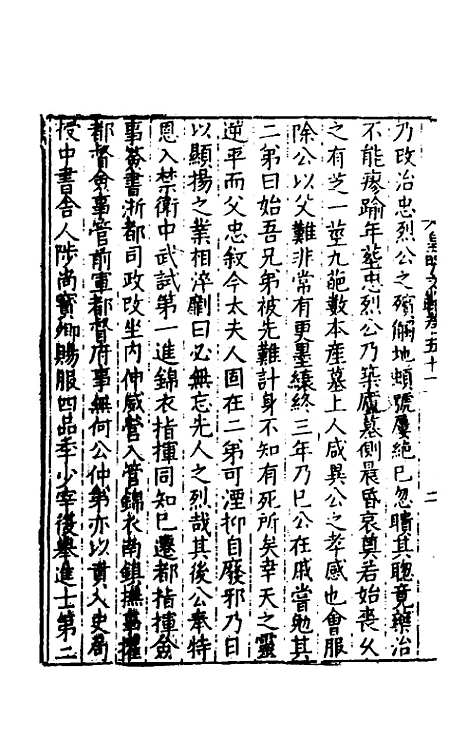 乃改治忠烈公之殯解地頓號屢絕已忽晴其聰竟藥治
不能瘳踰年塟忠烈公乃築廬墓側晨昏哀奠若始喪久
之有芝一莖九葩數本產墓上人咸異公之孝感也會服
除公以父難非常有更墨縗終三年乃巳公在戚嘗勉其
二弟曰始吾兄弟被先難計身不知有死所矣幸天之靈
逆平而父忠叙今太夫人固在二弟可湮抑自廢邪乃日
以顯揚之業相淬劘曰必無忘先人之烈哉其後公奉特
恩入禁衛中武試第一進錦衣指揮同知巳遷都指揮僉
事僉書浙都司政改坐內仲威營入管錦衣南鎮撫事擢
都督僉事管前軍都督府事無何公仲弟亦以貢入史舘
授中書舍人陟尚寶卿賜服四品季少宰後舉進士第二
皇明文 卷五十一
二